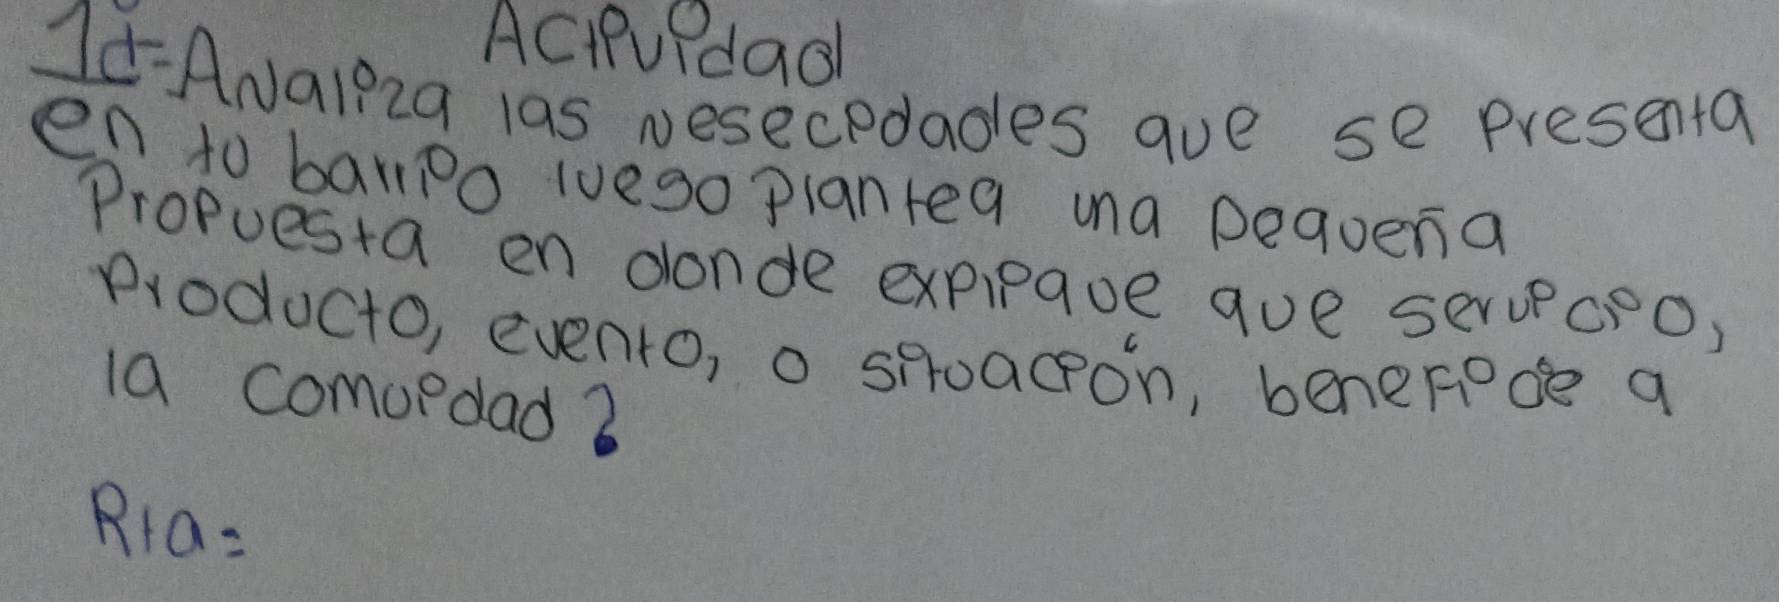 Actividad
1d=Analiza las nesecidades que se presenta
en tu barrio luego plantea una pequeña
propuesta en donde explique que servicio,
producto, evento, o situación, beneficie a
la comuidad?
Rta=